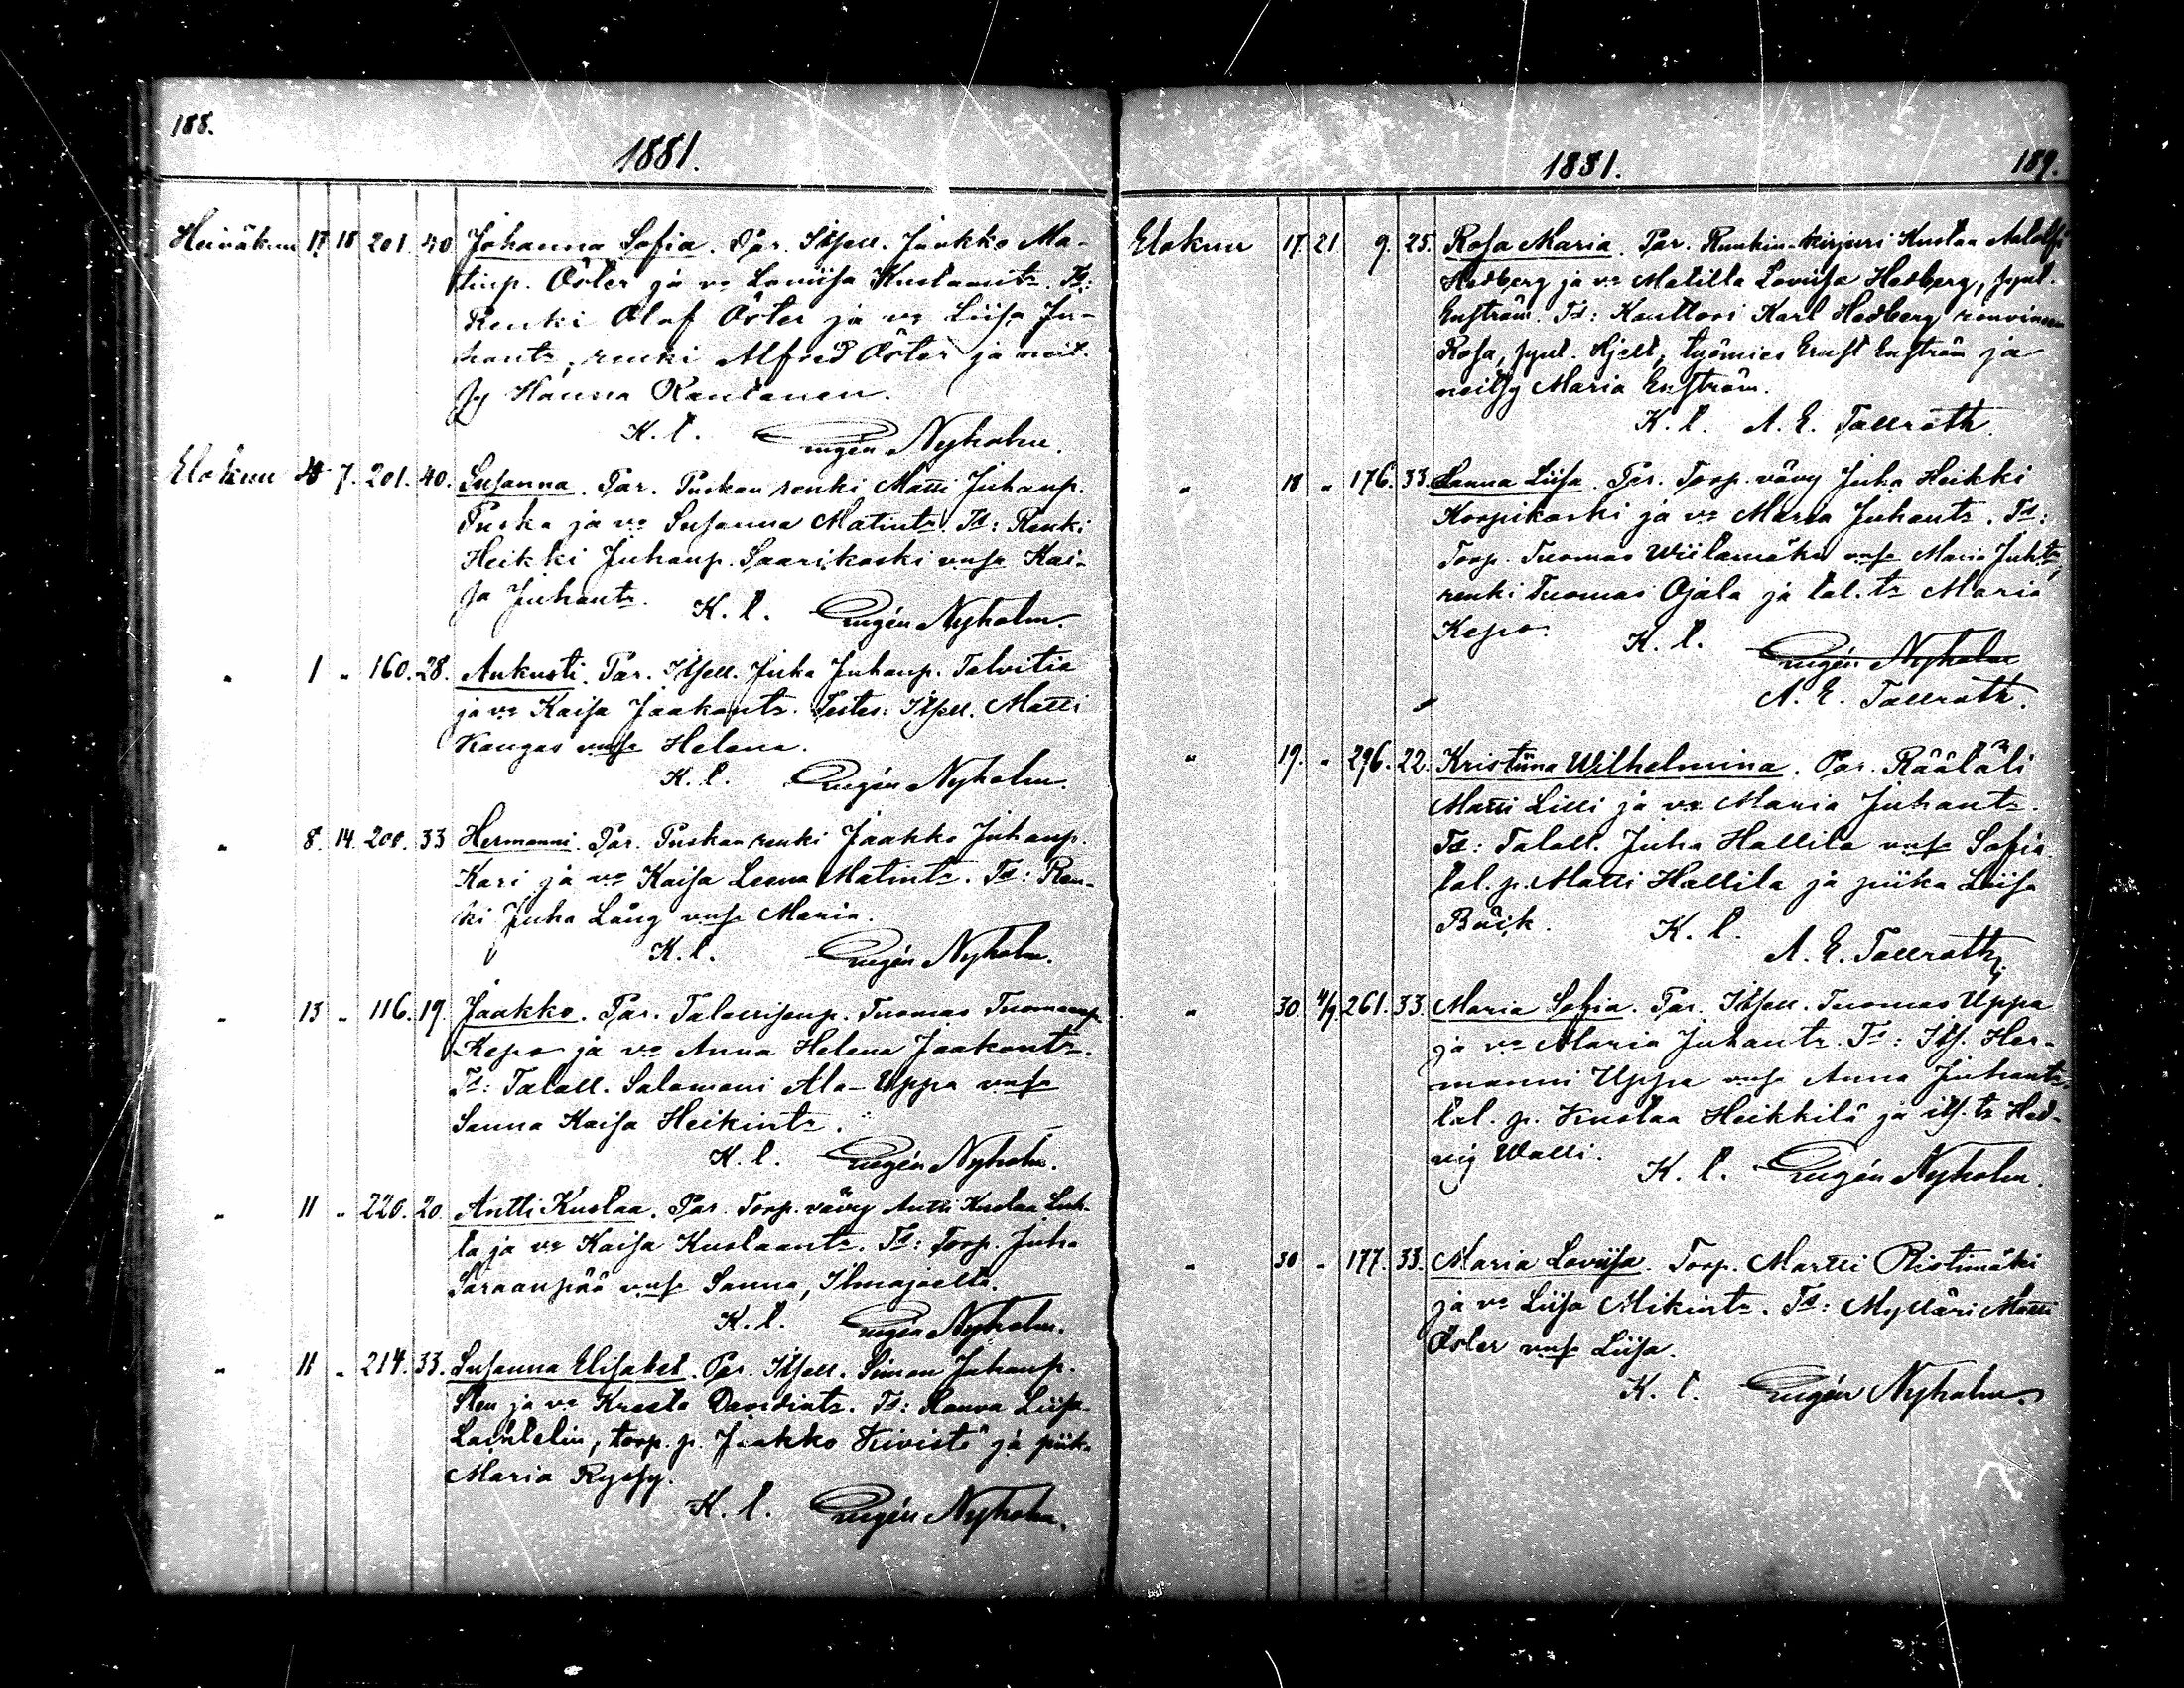 188.
1881.
Heinäkuu 17 18 201. 40 Johanna Sofia. Par. Itsell. Jaakko Ma-
tinp. Öster ja vo Loviisa Kustaantr. Ts:
Renki Olof Öster ja vo Liisa Ju-
hantr, renki Alfred Öster ja neit-
sy Hanna Rantanen.
K. l. Eugén Nyholm.
Elokuu 7. 201. 40. Susanna. Par. Puskan renki Matti Juhanp.
Puska ja vo Susanna Matintr. Ts: Renki
Heikki Juhanp. Saarikoski vmsa Kai-
sa Juhantr.
K. l. Eugén Nyholm.
" 1 " 160. 28. Aukusti. Par. Itsell. Juha Juhanp. Talvitie
ja vo Kaisa Jaakontr. Testes: Itsell. Matti
Kangas vmsa Helena.
K. l. Eugén Nyholm.
" 8. 14. 200. 33 Hermanni. Par. Puskan renki Jaakko Juhanp.
Kari ja vo Kaisa Leena Matintr. Ts: Ren-
ki Juha Lång vmsa Maria.
K. l. Eugén Nyholm.
" 13 " 116. 19. Jaakko. Par. Talollisenp. Tuomas Tuomaanp
Kepo ja vo Anna Helena Jaakontr.
Ts: Taloll. Salomoni Ala-Uppa vmsa
Sanna Kaisa Heikintr.
K. l. Eugén Nyholm.
" 11 " 220. 20. Antti Kustaa. Par. Torp. vävy Antti Kustaa Luh-
ta ja vo Kaisa Kustaantr. Ts: Torp. Juha
Saraanpää vmsa Sanna, Ilmajoelta.
K. l. Eugén Nyholm.
" 11 " 214. 33. Susanna Elisabet. Par. Itsell. Simon Juhanp.
Sten ja vo Kreeta Davidintr. Ts: Rouva Liisa
torp. p. Jaakko Kivistö ja piika
Maria Ryssy.
K. l. Eugén Nyholm.
1881. 189.
Elokuu 17. 21 9. 25. Rosa Maria. Par. Ruukin-kirjuri Kustaa Adolf
Hedberg ja vo Matilta Loviisa Hedberg, synt.
Enström. Ts: Konttori Karl Hedberg
Rosa, synt. Hjelt, työmies Ernst Enström ja
neitsy Maria Enström.
K. l. A. E. Tallroth.
" 18 " 176. 33. Sanna Liisa. Par. Torp. vävy Juha Heikki
Korpikoski ja vo Maria Juhantr. Ts:
Torp. Tuomas Wiitamäki vmsa Maria Juhtr,
renki Tuomas Ojala ja tal. tr Maria
Kepo.
K. l. Eugén Nyholm
A. E. Tallroth.
" 19. " 296. 22. Kristiina Wilhelmina. Par. Räätäli
Matti Lilli ja vo Maria Juhantr.
Ts: Taloll. Juha Hallila vmsa Sofia
tal. p. Matti Hallila ja piika Liisa
Bäck.
K. l. A. E. Tallroth.
" 30 4/9. 261. 33. Maria Sofia. Par. Itsell. Tuomas Uppa
ja vo Maria Juhantr. Ts: Its. Her-
manni Uppa vmsa Anna Juhantr,
tal. p. Kustaa Heikkilä ja its. tr Hed-
vig Walli.
K. l. Eugén Nyholm.
" 30 " 177. 33. Maria Loviisa. Torp. Martti Ristimäki
ja vo Liisa Mikintr. Ts: Mylläri Matti
Öster vmsa Liisa.
K. l. Eugén Nyholm.